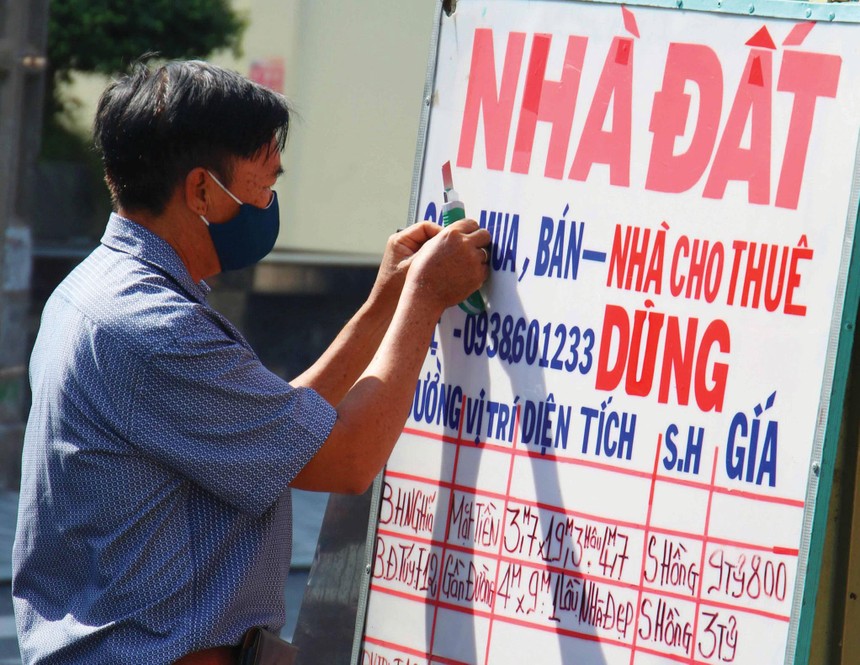 NHÀ ĐẤT
MUA, BÁN - NHÀ CHO THUÊ
- 0938601233 DŨNG
ĐƯỜNG VỊ TRÍ DIỆN TÍCH S.H GIÁ
B.H.NGHĨA MẶT TIỀN 3M7x19M3, HẬU 4M7 S HỒNG 9 Tỷ 800
B.Đ.TÚY F12 GẦN ĐƯỜNG 4Mx9M 1 LẦU NHÀ ĐẸP S HỒNG 3 Tỷ